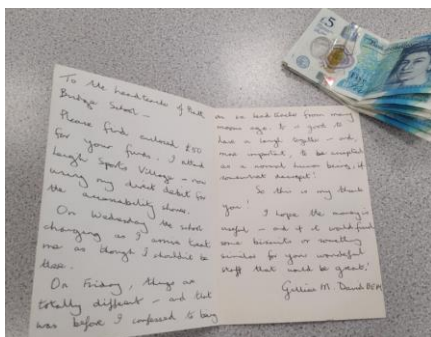 To the headteacher of Bath
Bridge School —
Please find enclosed £50
for your funds. I attend
Sports Village — now
using my direct debit for
the accessibility shower.
On Wednesday the school
changing as I arrive treat
me as though I shouldn't be
there.
On Friday, things are
totally different — and that
was before I confessed to being
an ex headteacher from many
moons ago. It is good to
have a laugh together — and,
more important, to be accepted
as a normal human being, if
somewhat decrepit!
So this is my thank
you!
I hope the money is
useful — and if it would fund
some biscuits or something
similar for your wonderful
staff that would be great!
Gillian M. David
£5